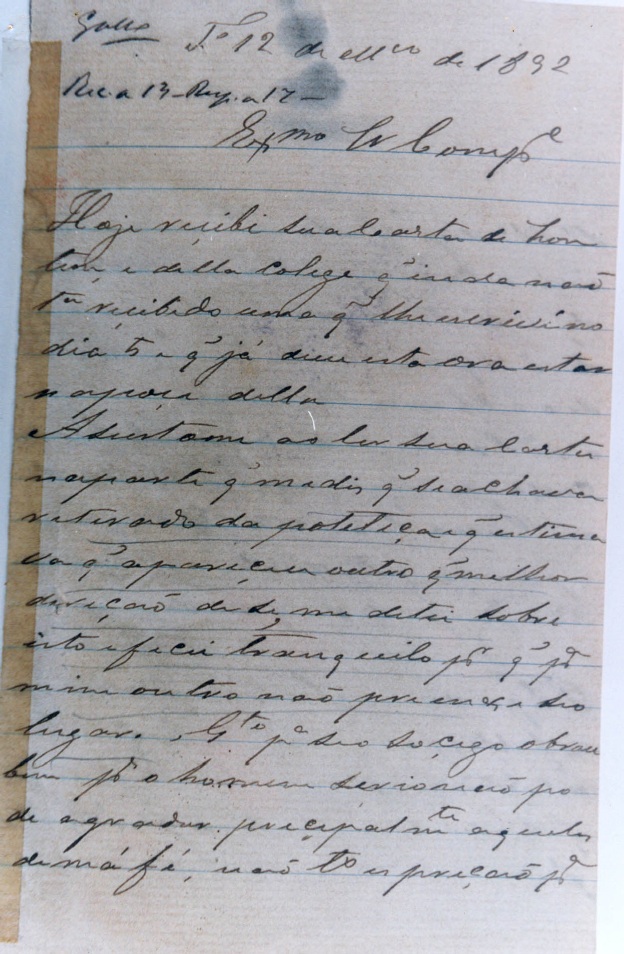 Gallo
Fª 12 de Mço de 1892
Rec. a 13 - Resp. a 17 -
Exmo Sr Compe
Hoje recibi sua Carta de hon
tem e della colige q' inda não
ta recibido uma q' lhe screvi no
dia 5 e q' já deve esta ora estar
na posse della
Asustome ao ler sua Carta
na parte q' me dis q' se achava
retirado da poleteça e q' estima
va q' apareçeu outro q' melhor
dereção dese, me detive sobre
isto e fiquei tranquilo pr q' pa
mim outro não preenxe seo
lugar. Gto pa seo soçego obrou
bem pr o homem serio não po
de agradar preçipalmte aqueles
de má fé, não to espreção pa